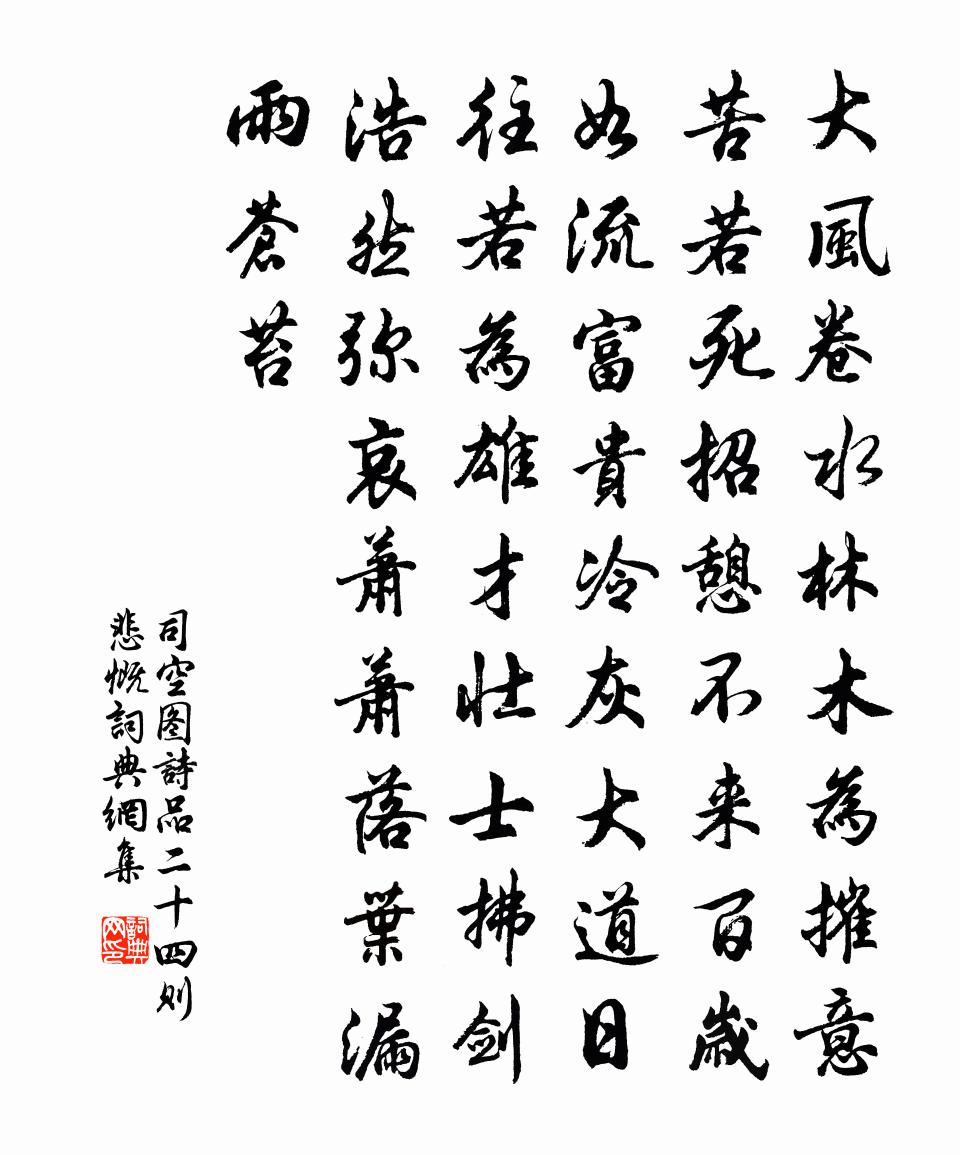 大風卷水林木為摧意
苦若死招憩不来百歲
如流富貴冷灰大道日
往若為雄才壯士拂剑
浩然弥哀蕭蕭落葉漏
雨蒼苔
司空图詩品二十四则
悲慨詞典網集
詞典网印